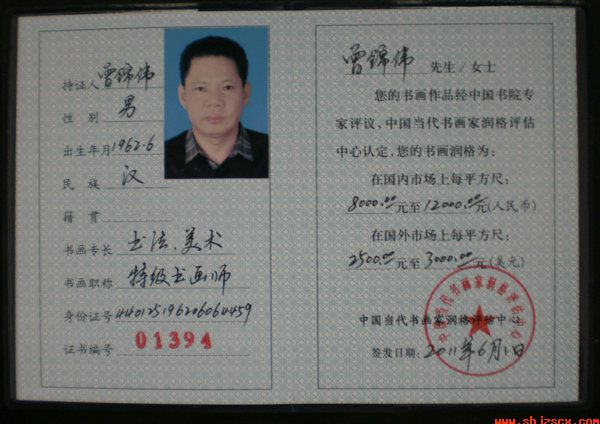 持证人 曾锦伟
性 别 男
出生年月 1962.6
民 族 汉
籍 贯
书画专长 书法.美术
书画职称 特级书画师
身份证号 440125196206064459
证书编号 01394
曾锦伟 先生/女士
您的书画作品经中国书院专
家评议,中国当代书画家润格评估
中心认定,您的书画润格为:
在国内市场上每平方尺:
8000.00元至12000.00元(人民币)
在国外市场上每平方尺:
2500.00元至3000.00元(美元)
中国当代书画家润格评估中心
签发日期: 2011年6月1日
中国当代书画家润格评估中心
www.sbjzscx.com